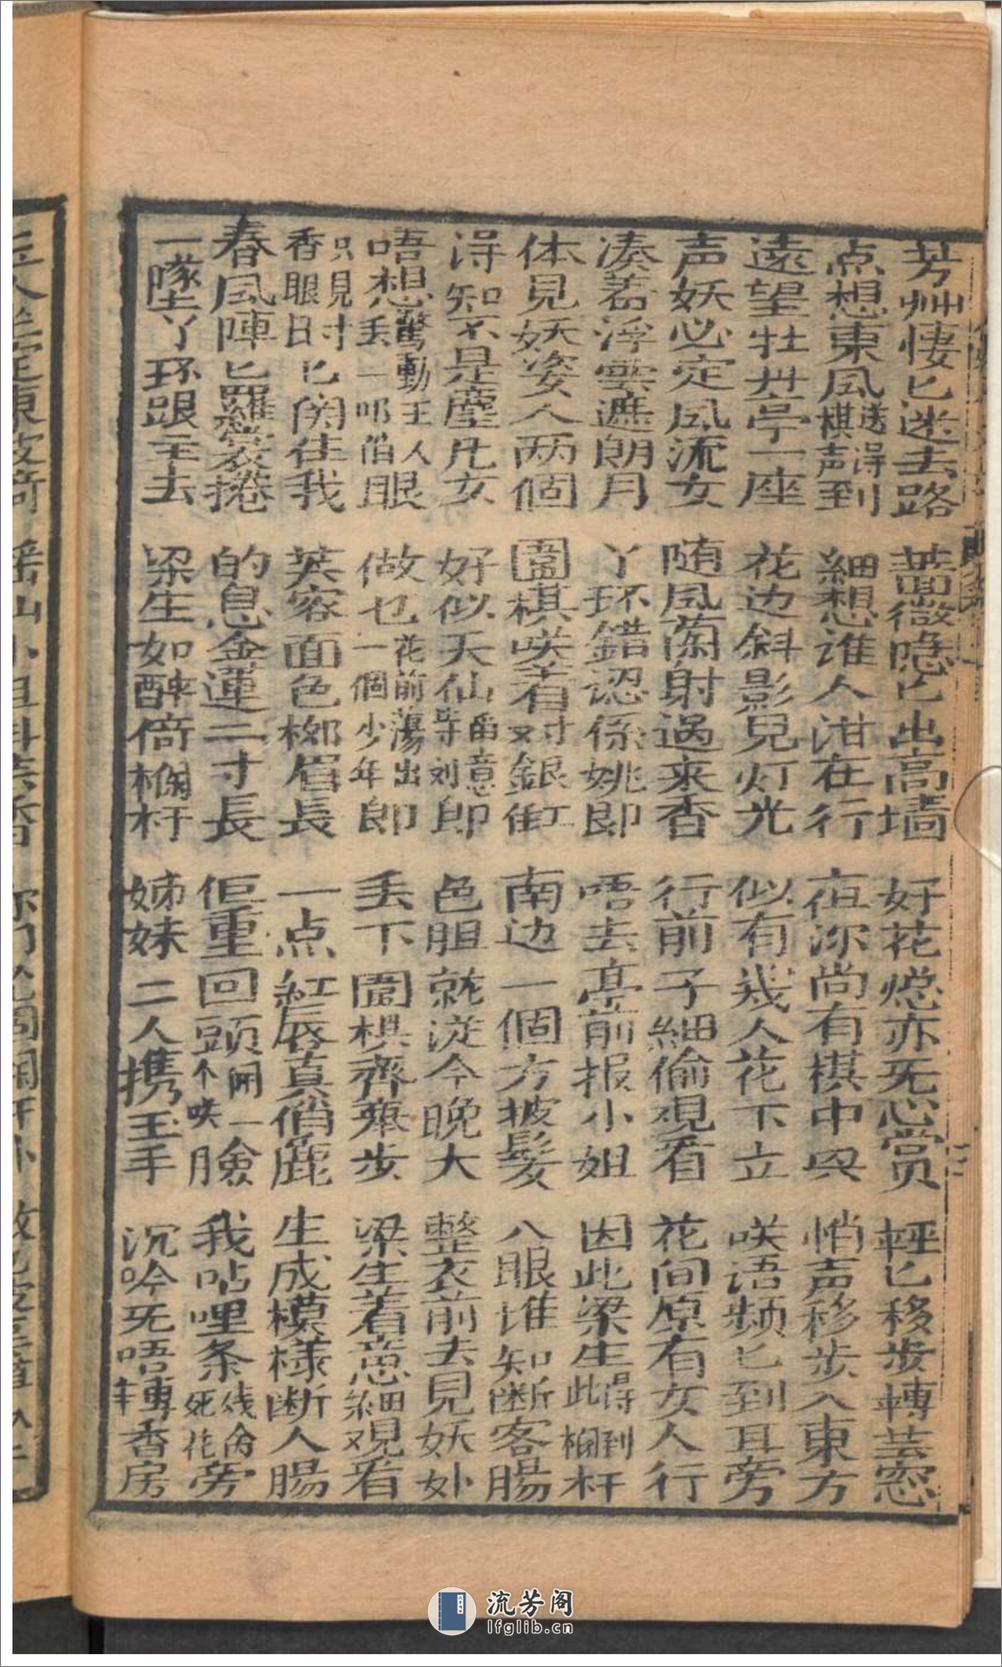 芳艸悽匕迷去路　薔薇隐匕出高墙　好花熄亦死心赏　輕匕移步轉芸窓
点想東風送得棋声到　細想谁人泔在行　夜深尚有棋中興　悄声移步入東方
遠望牡丹亭一座　花边斜影見灯光　似有幾人花下立　咲语频匕到耳旁
声妖必定風流女　随風蘭射過来香　行前子細偷观看　花间原有女人行
凑着浮雲遮朗月　丫环錯認係姚郎　唔去亭前报小姐　因此梁生此得到栏杆
体見妖姿人两個　圍棋咲着又对銀缸　南边一個方披髮　八眼谁知断客腸
得知不是塵凡女　好似天仙畄意等刘郎　色胆就從今晚大　整衣前去見妖妝
唔想驚動王人　唔想丢一吖伯眼　做乜花前蕩出一個少年郎　丢下圍棋齊举步　梁生着意細观看
只見对香眼日匕闵住我　芙容面色柳眉長　一点紅唇真俏麗　生成模樣断人腸
春風陣匕羅裳捲　的息金蓮三寸長　佢重回頭不咲開一臉　我咕哩条残命死花旁
一隊丫环跟主去　梁生如醉倚栏杆　姊妹二人携玉手　沉吟死唔轉香房
流芳阁
lfglib.cn